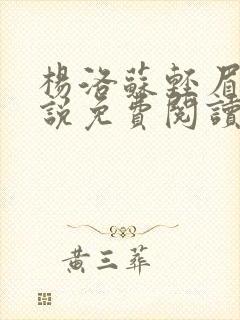 楊洛蘇輕眉
說免費閱讀
黃三葬